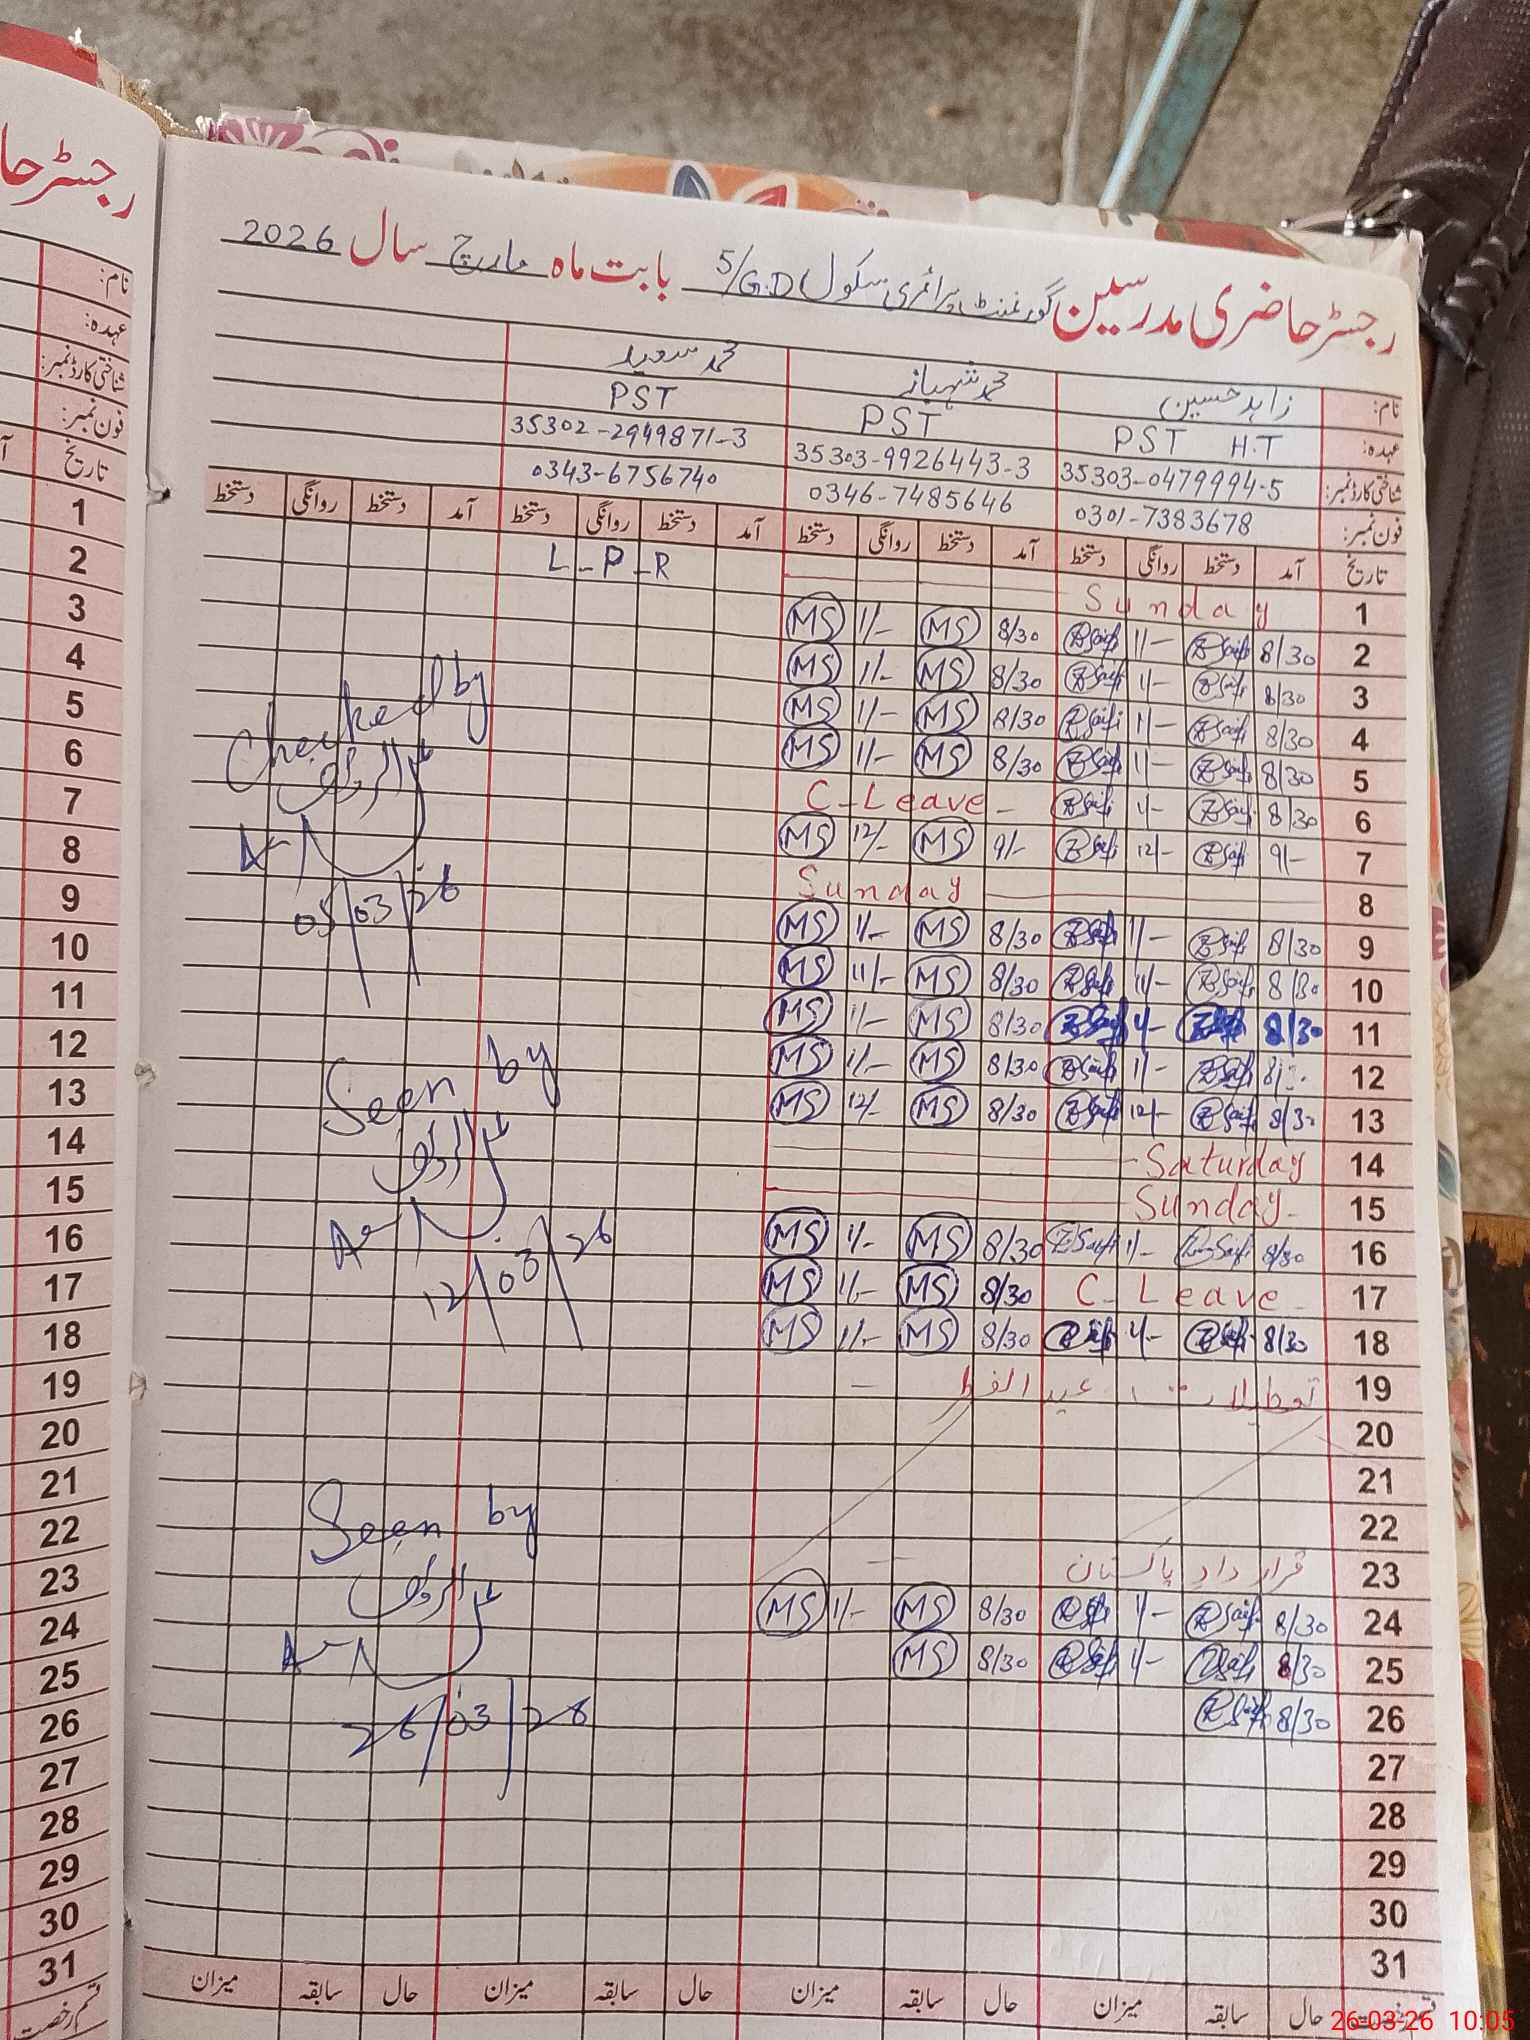 رجسٹر حاضری مدرسین گورنمنٹ پرائمری سکول 5/G.D بابت ماہ مارچ سال 2026
نام: زاہد حسین محمد شہباز محمد سعید
عہدہ: PST H.T PST PST
شناختی کارڈ نمبر: 35303-0479994-5 35303-9926443-3 35302-2949871-3
فون نمبر: 0301-7383678 0346-7485646 0343-6756740
تاریخ آمد دستخط روانگی دستخط آمد دستخط روانگی دستخط آمد دستخط روانگی دستخط آمد دستخط روانگی دستخط
1 Sunday L-P-R
2 8/30 Z Saifi 1/- Z Saifi 8/30 MS 1/- MS
3 8/30 Z Saifi 1/- Z Saifi 8/30 MS 1/- MS
4 8/30 Z Saifi 1/- Z Saifi 8/30 MS 1/- MS
5 8/30 Z Saifi 1/- Z Saifi 8/30 MS 1/- MS
6 8/30 Z Saifi 1/- Z Saifi C-Leave
7 9/- Z Saifi 12/- Z Saifi 9/- MS 12/- MS
8 Sunday
9 8/30 Z Saifi 1/- Z Saifi 8/30 MS 1/- MS
10 8/30 Z Saifi 1/- Z Saifi 8/30 MS 1/- MS
11 8/30 1/- 8/30 MS 1/- MS
12 8/30 Z Saifi 1/- Z Saifi 8/30 MS 1/- MS
13 8/30 Z Saifi 12/- Z Saifi 8/30 MS 12/- MS
14 Saturday
15 Sunday
16 8/30 1/- Z Saifi 8/30 MS 1/- MS
17 C-Leave 8/30 MS 1/- MS
18 8/30 1/- 8/30 MS 1/- MS
19 تعطیلات عید الفطر
20
21
22
23 قرار داد پاکستان
24 8/30 Z Saifi 1/- 8/30 MS 1/- MS
25 8/30 Z Saifi 1/- Z Saifi 8/30 MS
26 8/30 Z Saifi
27
28
29
30
31
Checked by
05/03/26
Seen by
12/03/26
Seen by
26/03/26
حال سابقہ میزان حال سابقہ میزان حال سابقہ میزان حال سابقہ میزان
رجسٹر حا
نام:
عہدہ:
شناختی کارڈ نمبر:
فون نمبر:
تاریخ
1
2
3
4
5
6
7
8
9
10
11
12
13
14
15
16
17
18
19
20
21
22
23
24
25
26
27
28
29
30
31
قسم رخصت
26-03-26 10:05